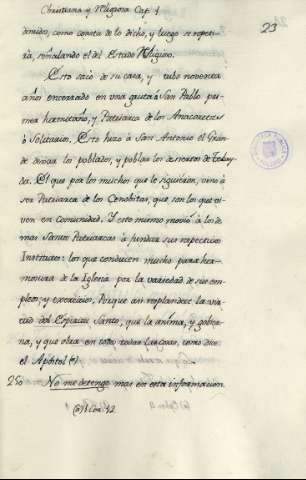 Christiana y Religiosa Cap. 1
23
dimido, como consta de lo dicho, y luego se repeti-
rà, señalando el del Estado Religioso.
Esto sacò de su casa, y tubo noventa
años encerrado en una gruta à San Pablo pri-
mer hermitaño, y Patriarca de los Anacoretas
ò Solitarios. Esto hizo à San Antonio el Gran-
de dexar los poblados, y poblar los desiertos de Tebay-
da. El que por los muchos que le siguieron, vino à
ser Patriarca de los Cenobitas, que son los que vi-
ven en comunidad. Y esto mismo moviò à los de-
mas Santos Patriarcas à fundar sus respectivos
Institutos: los que conducen mucho para her-
mosura de la Iglesia por la variedad de sus em-
pleos, y exercicios. Porque asi resplandece la vir-
tud del Espiritu Santo, que la anima, y gobier-
na, y que obra en todos todas las cosas, como dice
el Apostol (a).
250 No me detengo mas en esta informacion
(a) 1 Cor. 12.